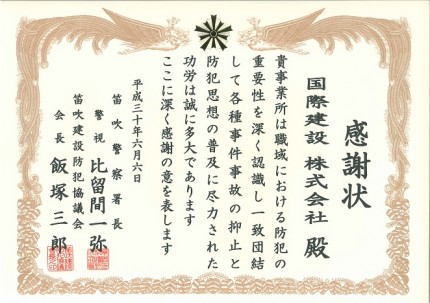 感謝状
国際建設 株式会社 殿
貴事業所は職域における防犯の
重要性を深く認識し一致団結
して各種事件事故の抑止と
防犯思想の普及に尽力された
功労は誠に多大であります
ここに深く感謝の意を表します
平成三十年六月六日
笛吹警察署長
警視 比留間一弥
笛吹建設防犯協議会
会長 飯塚三郎